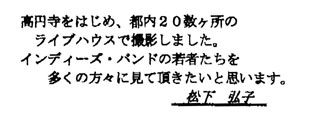 高円寺をはじめ、都内２０数ヶ所の
ライブハウスで撮影しました。
インディーズ・バンドの若者たちを
多くの方々に見て頂きたいと思います。
松下　弘子